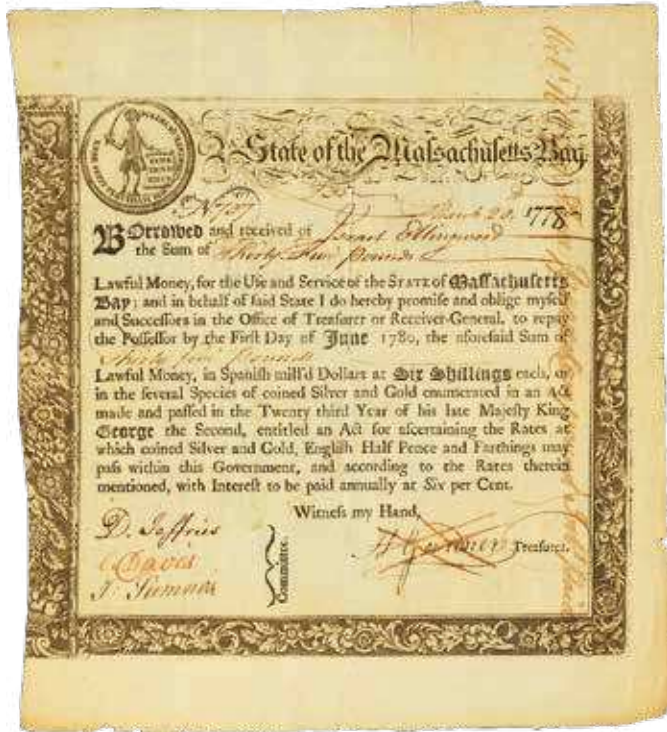 State of the Massachusetts-Bay.
No. 757
March 20, 1778
Borrowed and received of Israel Ellingwood
the Sum of Thirty Five Pounds
Lawful Money, for the Use and Service of the STATE of Massachusetts
Bay; and in behalf of said State I do hereby promise and oblige myself
and Successors in the Office of Treasurer or Receiver-General, to repay
the Possessor by the First Day of June 1780, the aforesaid Sum of
Pounds
Lawful Money, in Spanish mill'd Dollars at Six Shillings each, or
in the several Species of coined Silver and Gold enumerated in an Act
made and passed in the Twenty third Year of his late Majesty King
George the Second, entitled an Act for ascertaining the Rates at
which coined Silver and Gold, English Half Pence and Farthings may
pass within this Government, and according to the Rates therein
mentioned, with Interest to be paid annually at Six per Cent.
Witness my Hand,
D. Jeffries
Davis
Sumner
Committee.
H Gardner Treasurer.